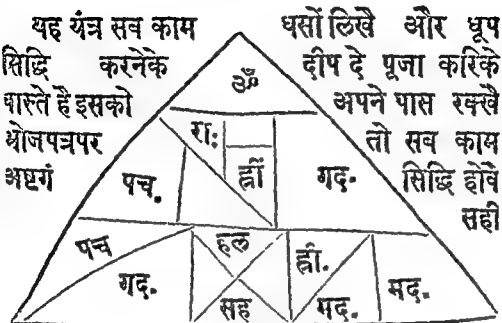 यह यंत्र सब काम
सिद्धि करनेके
वास्ते है इसको
भोजपत्रपर
अष्टगं
धसों लिखै और धूप
दीप दे पूजा करिके
अपने पास रक्खै
तो सब काम
सिद्धि होवै
सही
ॐ
राः
ह्रीं
पच.
गद.
पच
गद.
हल
सह
ह्री.
मद.
मद.